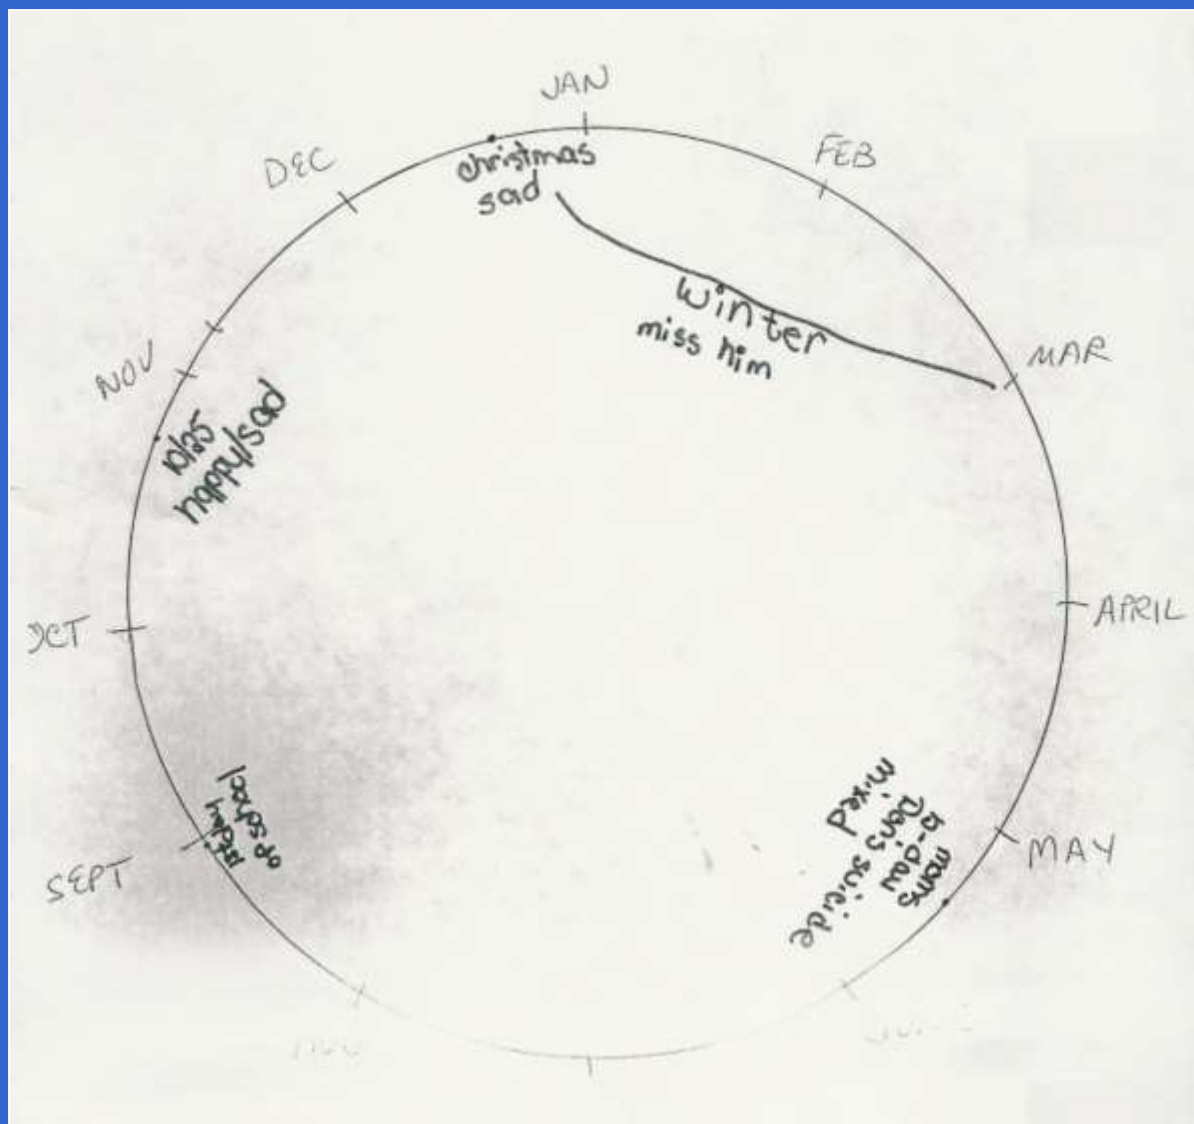 JAN
FEB
MAR
APRIL
MAY
SEPT
OCT
NOV
DEC
christmas
sad
winter
miss him
moms
b-day
Dons suicide
mixed
1st day
of school
10/25
happy/sad